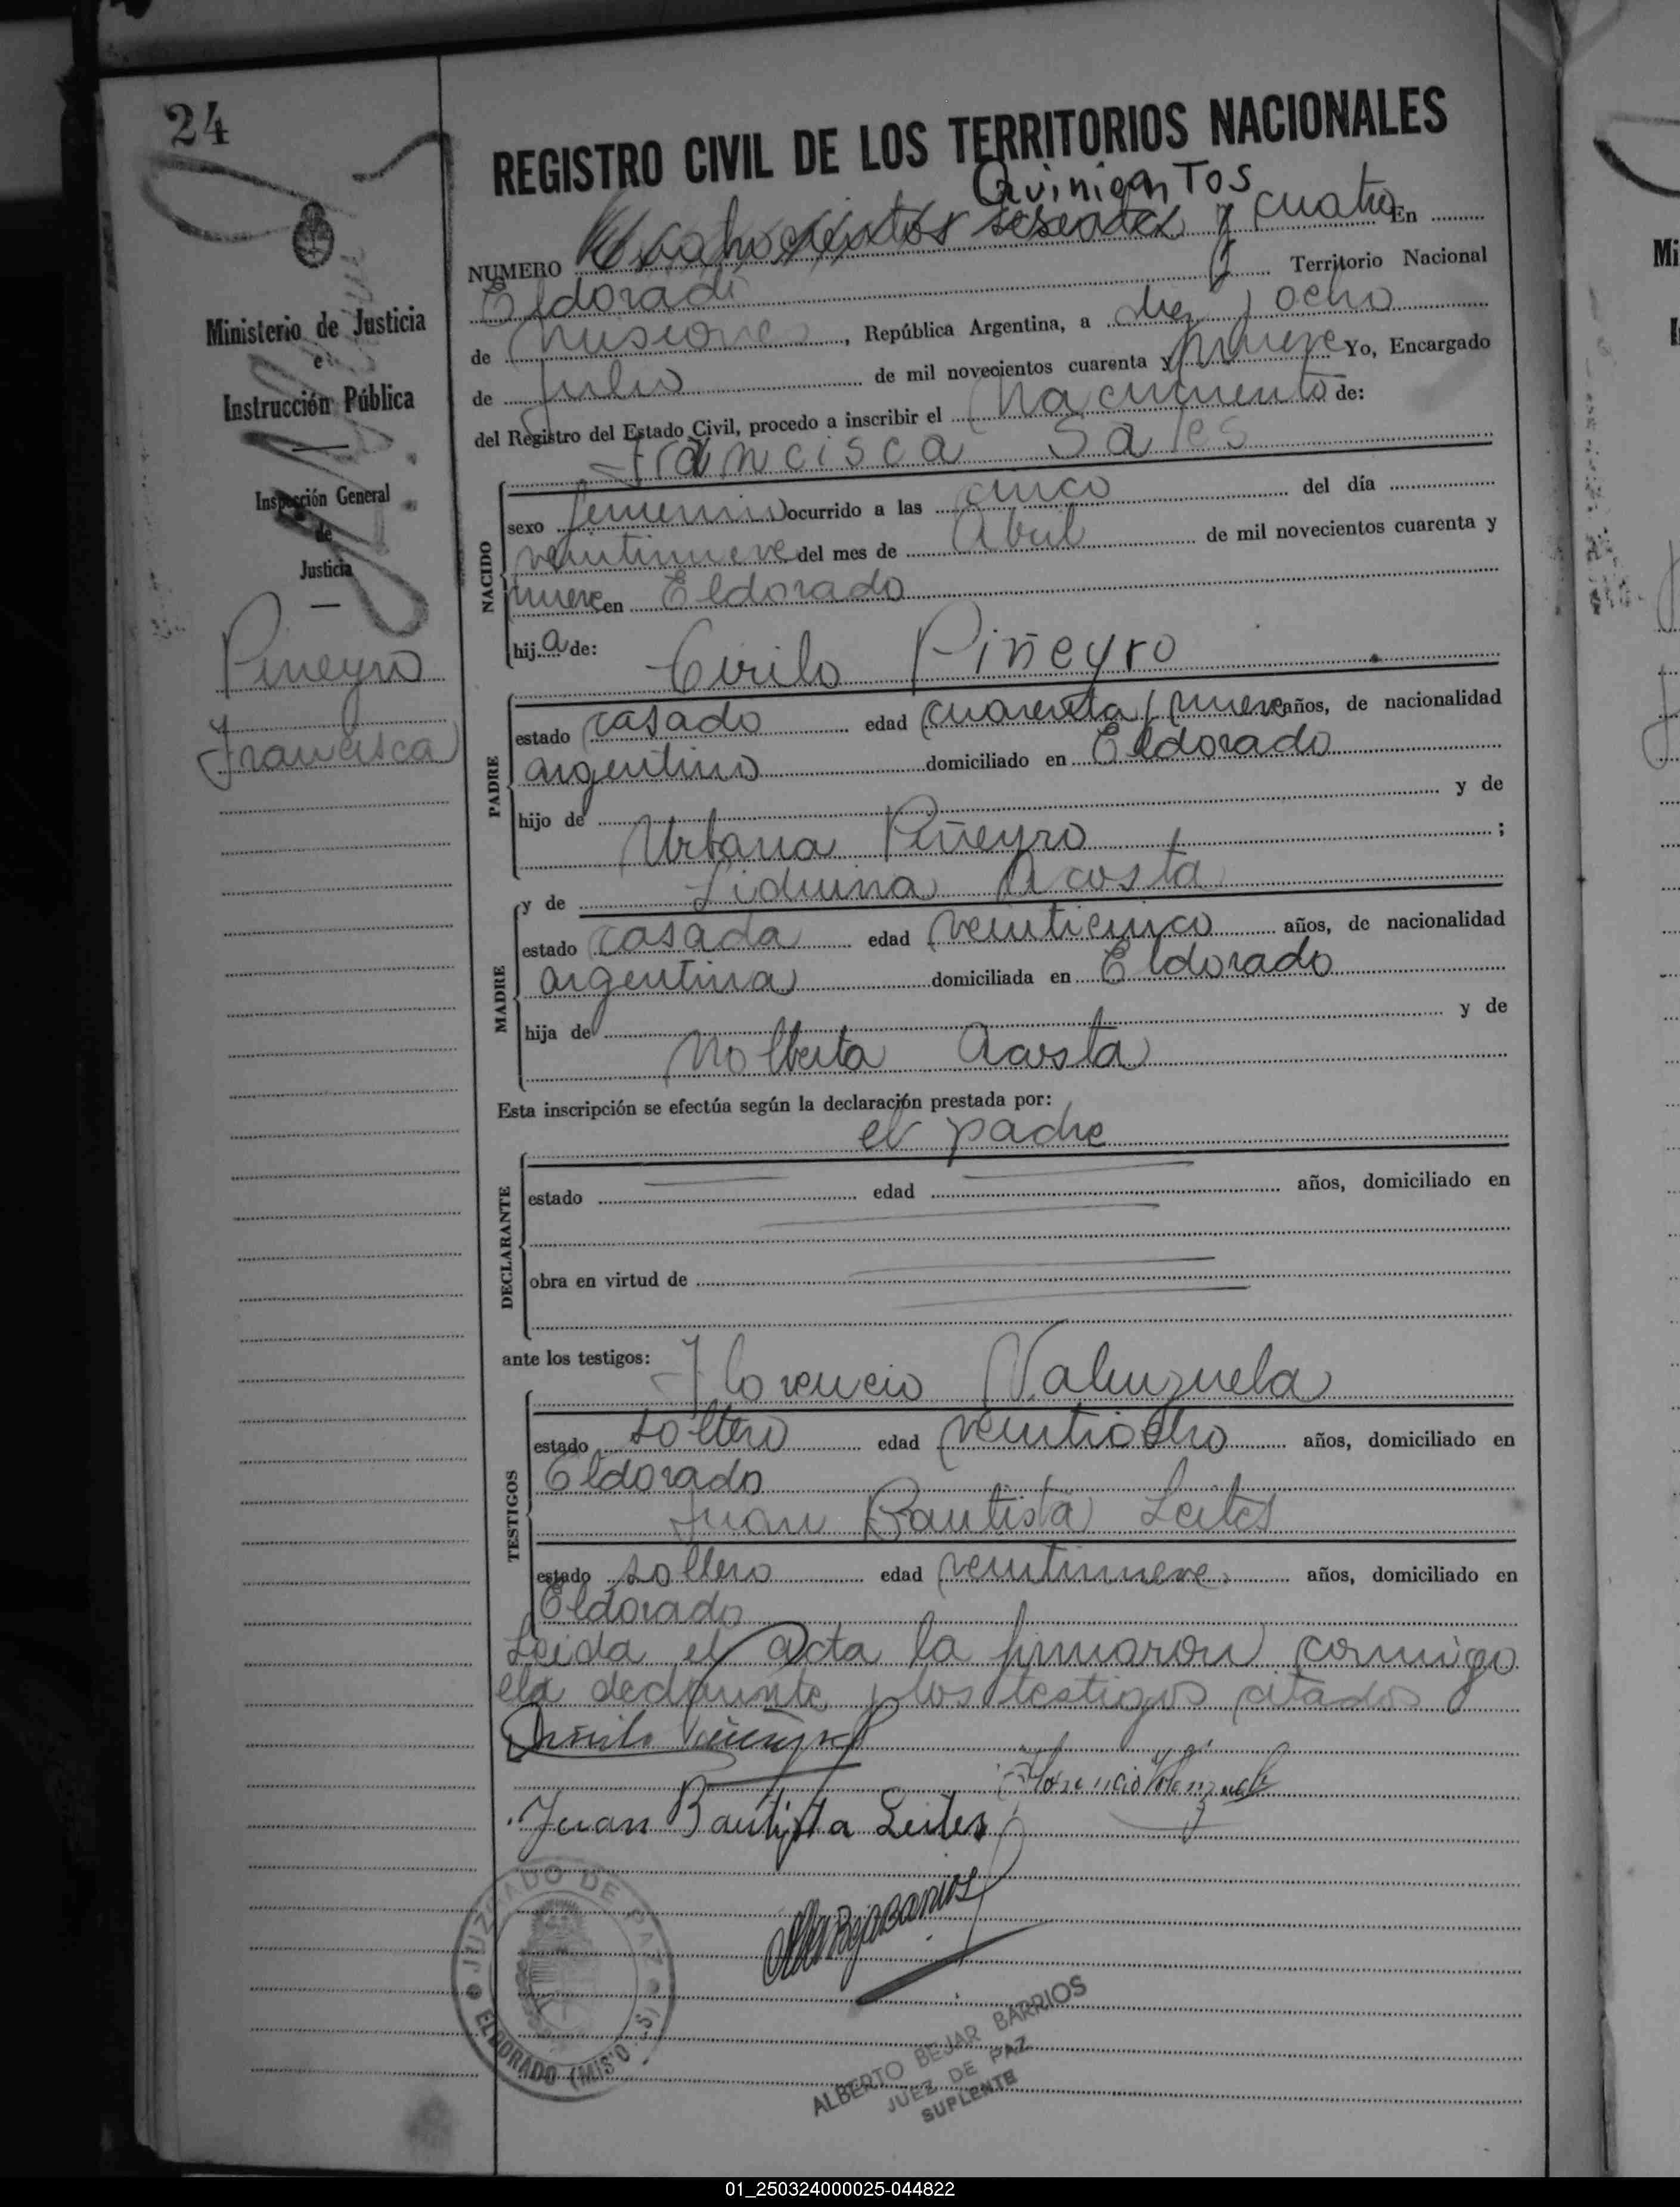 24
REGISTRO CIVIL DE LOS TERRITORIOS NACIONALES
Quinientos
NUMERO sesenta y cuatro En
Eldorado Territorio Nacional
de Misiones, República Argentina, a diez y ocho
de Julio de mil novecientos cuarenta y nueve Yo, Encargado
del Registro del Estado Civil, procedo a inscribir el nacimiento de:
Francisca Sales
NACIDO
sexo femenino ocurrido a las cinco del día
veintinueve del mes de Abril de mil novecientos cuarenta y
nueve en Eldorado
hij a de:
Cirilo Piñeyro
PADRE
estado casado edad cuarenta y nueve años, de nacionalidad
argentino domiciliado en Eldorado
hijo de y de
Urbana Piñeyro ;
y de Liduina Acosta
MADRE
estado casada edad veinticinco años, de nacionalidad
argentina domiciliada en Eldorado
hija de y de
Nolberta Acosta
Esta inscripción se efectúa según la declaración prestada por:
el padre
DECLARANTE
estado edad años, domiciliado en
obra en virtud de
ante los testigos:
Florencio Valenzuela
TESTIGOS
estado soltero edad veintiocho años, domiciliado en
Eldorado
Juan Bautista Leites
estado soltero edad veintinueve años, domiciliado en
Eldorado
Leida el acta la firmaron conmigo
el declarante y los testigos citados
Cirilo Piñeyro
Florencio Valenzuela
Juan Bautista Leites
JUZGADO DE PAZ
ELDORADO (MIS
ALBERTO BEJAR BARRIOS
JUEZ DE PAZ
SUPLENTE
Ministerio de Justicia
e
Instrucción Pública
Inspección General
de
Justicia
Piñeyro
Francisca
01_250324000025-044822